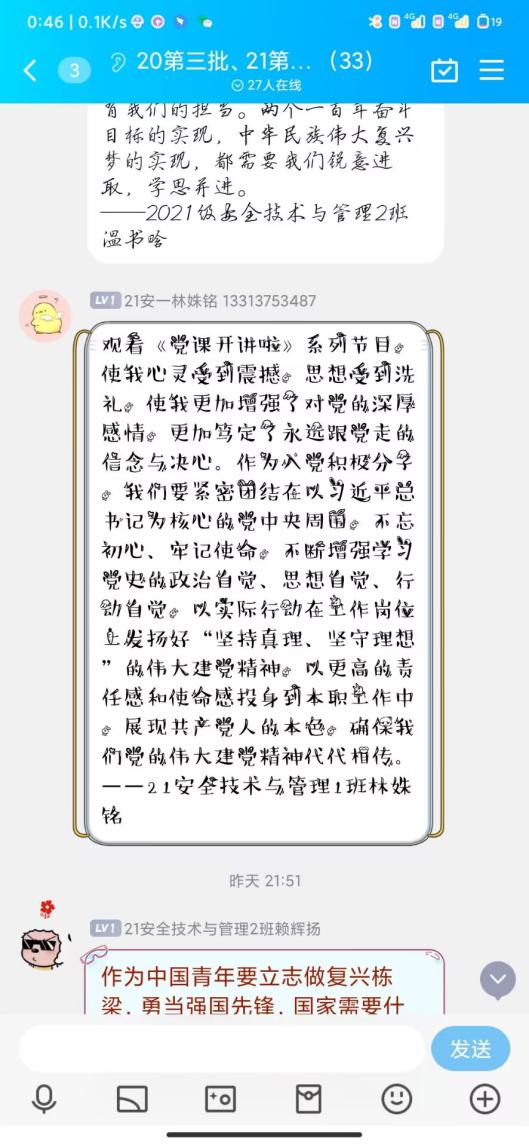 0:46 | 0.1K/s
4G 4G 19
3 20第三批、21第... (33)
27人在线
有我们的担当。两个一百年奋斗
目标的实现，中华民族伟大复兴
梦的实现，都需要我们锐意进
取，学思并进。
——2021级安全技术与管理2班
温书晗
LV1 21安一林姝铭 13313753487
观看《党课开讲啦》系列节目。
使我心灵受到震撼。思想受到洗
礼。使我更加增强了对党的深厚
感情。更加笃定了永远跟党走的
信念与决心。作为入党积极分子
。我们要紧密团结在以习近平总
书记为核心的党中央周围。不忘
初心、牢记使命。不断增强学习
党史的政治自觉、思想自觉、行
动自觉。以实际行动在工作岗位
立发扬好“坚持真理、坚守理想
”的伟大建党精神。以更高的责
任感和使命感投身到本职工作中
。展现共产党人的本色。确保我
们党的伟大建党精神代代相传。
——21安全技术与管理1班林姝
铭
昨天 21:51
LV1 21安全技术与管理2班赖辉扬
作为中国青年要立志做复兴栋
梁，勇当强国先锋，国家需要什
发送